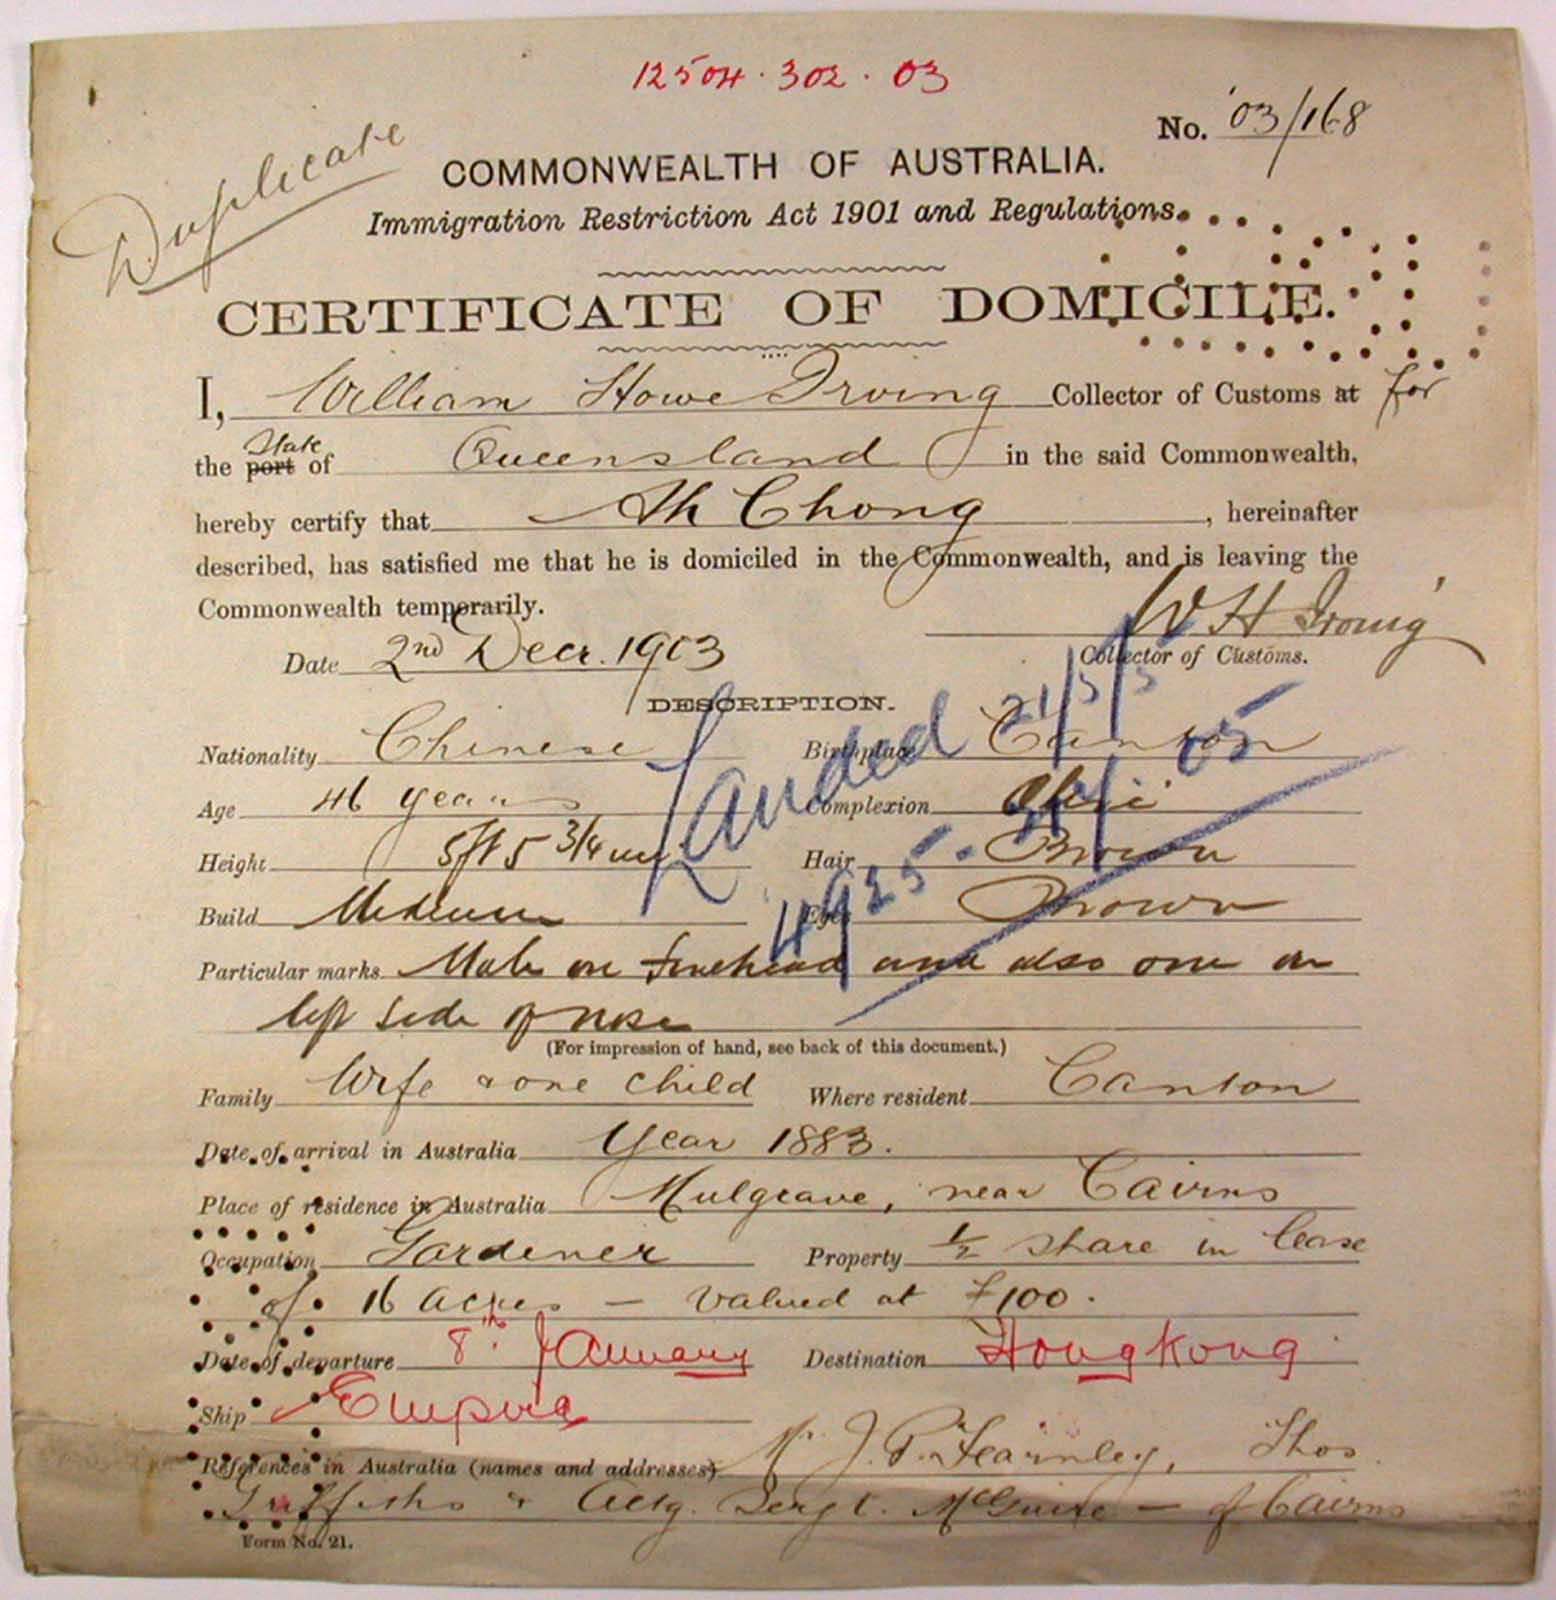 12504.302.03
No. '03/168
Duplicate
COMMONWEALTH OF AUSTRALIA.
Immigration Restriction Act 1901 and Regulations.
CERTIFICATE OF DOMICILE.
I, William Howe Irving Collector of Customs at for
the port State of Queensland in the said Commonwealth,
hereby certify that Ah Chong, hereinafter
described, has satisfied me that he is domiciled in the Commonwealth, and is leaving the
Commonwealth temporarily.
W H Irving
Date 2nd Decr. 1903
Collector of Customs.
DESCRIPTION.
Landed 21/5/5
Nationality Chinese Birthplace Canton
Age 46 years Complexion Olive
Height 5ft 5 3/4 ins Hair Brown
Build Medium Eyes Brown
Particular marks Mole on forehead and also one on
left side of nose
(For impression of hand, see back of this document.)
Family Wife & one child Where resident Canton
Date of arrival in Australia Year 1883.
Place of residence in Australia Mulgrave, near Cairns
Occupation Gardener Property 1/2 share in lease
of 16 acres — valued at £100.
Date of departure 8th January Destination Hongkong
Ship Empire
References in Australia (names and addresses) Mr. J. P. Fearnley, Thos.
Griffiths & Actg. Sergt. McGuire — of Cairns
Form No. 21.